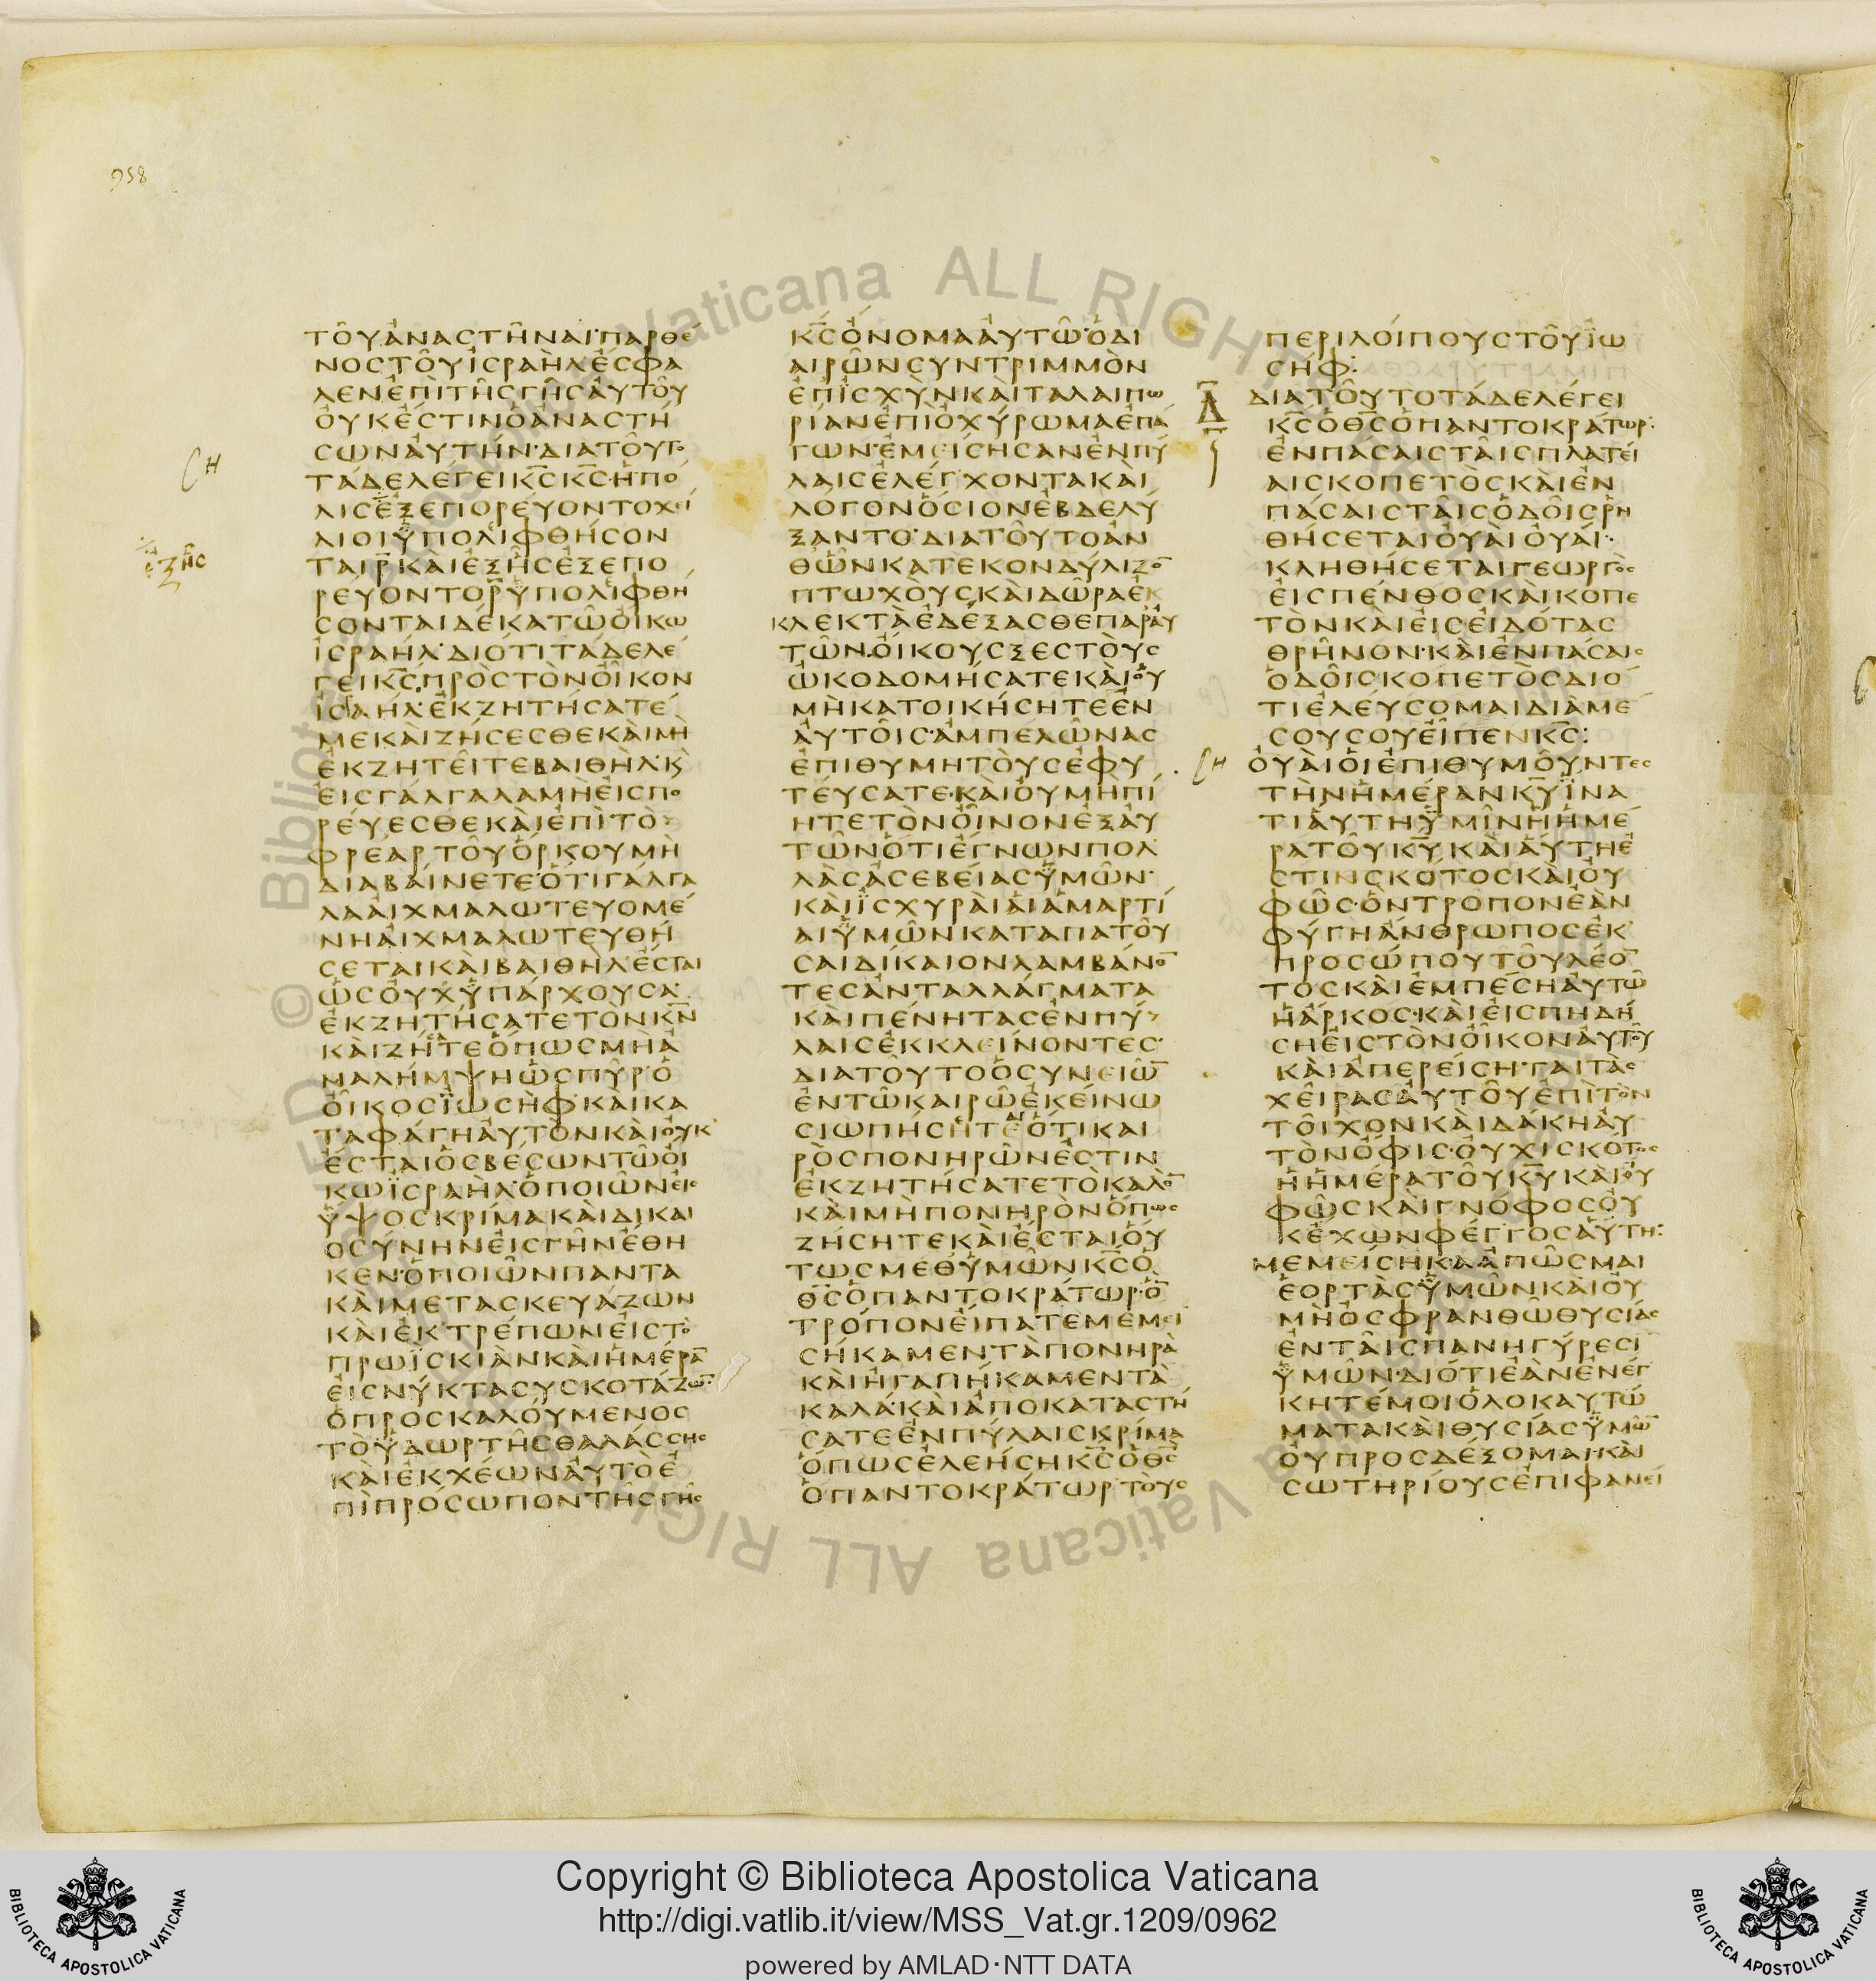 958
ΤΟΥΑΝΑϹΤΗΝΑΙ·ΠΑΡΘΕ
ΝΟϹΤΟΥΙϹΡΑΗΛΕϹΦΑ
ΛΕΝΕΠΙΤΗϹΓΗϹΑΥΤΟΥ
ΟΥΚΕϹΤΙΝΟΑΝΑϹΤΗ
ϹΩΝΑΥΤΗΝ·ΔΙΑΤΟΥΤο
ΤΑΔΕΛΕΓΕΙΚϹΚϹ·ΗΠΟ
ΛΙϹΕΞΕΠΟΡΕΥΟΝΤΟΧΕΙ
ΛΙΟΙΥΠΟΛΙΦΘΗϹΟΝ
ΤΑΙΡΚΑΙΕΞΗϹΕΞΕΠΟ
ΡΕΥΟΝΤΟΡΥΠΟΛΙΦΘΗ
ϹΟΝΤΑΙΔΕΚΑΤΩΟΙΚΩ
ΙϹΡΑΗΛ·ΔΙΟΤΙΤΑΔΕΛΕ
ΓΕΙΚϹΠΡΟϹΤΟΝΟΙΚΟΝ
ΙϹΑΗΛ·ΕΚΖΗΤΗϹΑΤΕ
ΜΕΚΑΙΖΗϹΕϹΘΕΚΑΙΜΗ
ΕΚΖΗΤΕΙΤΕΒΑΙΘΗΛ·Κ
ΕΙϹΓΑΛΓΑΛΑΜΗΕΙϹΠΟ
ΡΕΥΕϹΘΕΚΑΙΕΠΙΤΟ
ΦΡΕΑΡΤΟΥΟΡΚΟΥΜΗ
ΔΙΑΒΑΙΝΕΤΕ·ΟΤΙΓΑΛΓΑ
ΛΑΑΙΧΜΑΛΩΤΕΥΟΜΕ
ΝΗΑΙΧΜΑΛΩΤΕΥΘΗ
ϹΕΤΑΙΚΑΙΒΑΙΘΗΛΕϹΤΑΙ
ΩϹΟΥΧΥΠΑΡΧΟΥϹΑ·
ΕΚΖΗΤΗϹΑΤΕΤΟΝΚΝ
ΚΑΙΖΗΤΕΟΠΩϹΜΗΑ
ΝΑΛΗΜΨΗΩϹΠΥΡΟ
ΟΙΚΟϹΙΩϹΗΦ·ΚΑΙΚΑ
ΤΑΦΑΓΗΑΥΤΟΝΚΑΙΟΥΚ
ΕϹΤΑΙΟϹΒΕϹΩΝΤΩΟΙ
ΚΩΙϹΡΑΗΛ·ΟΠΟΙΩΝΕΙϹ
ΥΨΟϹΚΡΙΜΑΚΑΙΔΙΚΑΙ
ΟϹΥΝΗΝΕΙϹΓΗΝΕΘΗ
ΚΕΝ·ΟΠΟΙΩΝΠΑΝΤΑ
ΚΑΙΜΕΤΑϹΚΕΥΑΖΩΝ
ΚΑΙΕΚΤΡΕΠΩΝΕΙϹΤΟ
ΠΡΩΙϹΚΙΑΝΚΑΙΗΜΕΡΑ
ΕΙϹΝΥΚΤΑϹΥϹΚΟΤΑΖΩ
ΟΠΡΟϹΚΑΛΟΥΜΕΝΟϹ
ΤΟΥΔΩΡΤΗϹΘΑΛΑϹϹΗϹ
ΚΑΙΕΚΧΕΩΝΑΥΤΟΕ
ΠΙΠΡΟϹΩΠΟΝΤΗϹΓΗϹ
ΚϹΟΝΟΜΑΑΥΤΩ·ΟΔΙ
ΑΙΡΩΝϹΥΝΤΡΙΜΜΟΝ
ΕΠΙϹΧΥΝΚΑΙΤΑΛΑΙΠΩ
ΡΙΑΝΕΠΙΟΧΥΡΩΜΑΕΠΑ
ΓΩΝ·ΕΜΕΙϹΗϹΑΝΕΝΠΥ
ΛΑΙϹΕΛΕΓΧΟΝΤΑΚΑΙ
ΛΟΓΟΝΟϹΙΟΝΕΒΔΕΛΥ
ΞΑΝΤΟ·ΔΙΑΤΟΥΤΟΑΝ
ΘΩΝΚΑΤΕΚΟΝΔΥΛΙΖΟ
ΠΤΩΧΟΥϹΚΑΙΔΩΡΑΕΚ
ΚΛΕΚΤΑΕΔΕΞΑϹΘΕΠΑΡΑΥ
ΤΩΝ·ΟΙΚΟΥϹΞΕϹΤΟΥϹ
ΩΚΟΔΟΜΗϹΑΤΕΚΑΙΟΥ
ΜΗΚΑΤΟΙΚΗϹΗΤΕΕΝ
ΑΥΤΟΙϹ·ΑΜΠΕΛΩΝΑϹ
ΕΠΙΘΥΜΗΤΟΥϹΕΦΥ
ΤΕΥϹΑΤΕ·ΚΑΙΟΥΜΗΠΙ
ΗΤΕΤΟΝΟΙΝΟΝΕΞΑΥ
ΤΩΝΟΤΙΕΓΝΩΝΠΟΛ
ΛΑϹΑϹΕΒΕΙΑϹΥΜΩΝ·
ΚΑΙΙϹΧΥΡΑΙΑΙΑΜΑΡΤΙ
ΑΙΥΜΩΝΚΑΤΑΠΑΤΟΥ
ϹΑΙΔΙΚΑΙΟΝΛΑΜΒΑΝΟ
ΤΕϹΑΝΤΑΛΛΑΓΜΑΤΑ
ΚΑΙΠΕΝΗΤΑϹΕΝΠΥ
ΛΑΙϹΕΚΚΛΕΙΝΟΝΤΕϹ·
ΔΙΑΤΟΥΤΟΟϹΥΝΕΙΩ
ΕΝΤΩΚΑΙΡΩΕΚΕΙΝΩ
ϹΙΩΠΗϹΗΤΕΟΤΙΚΑΙ
ΡΟϹΠΟΝΗΡΩΝΕϹΤΙΝ
ΕΚΖΗΤΗϹΑΤΕΤΟΚΑΛΟ
ΚΑΙΜΗΠΟΝΗΡΟΝΟΠΩϹ
ΖΗϹΗΤΕΚΑΙΕϹΤΑΙΟΥ
ΤΩϹΜΕΘΥΜΩΝΚϹΟ
ΘϹΟΠΑΝΤΟΚΡΑΤΩΡ·Ο
ΤΡΟΠΟΝΕΙΠΑΤΕΜΕΜΕΙ
ϹΗΚΑΜΕΝΤΑΠΟΝΗΡΑ
ΚΑΙΗΓΑΠΗΚΑΜΕΝΤΑ
ΚΑΛΑ·ΚΑΙΑΠΟΚΑΤΑϹΤΗ
ϹΑΤΕΕΝΠΥΛΑΙϹΚΡΙΜΑ
ΟΠΩϹΕΛΕΗϹΗΚϹΟΘϹ
ΟΠΑΝΤΟΚΡΑΤΩΡΤΟΥϹ
ΠΕΡΙΛΟΙΠΟΥϹΤΟΥΙΩ
ϹΗΦ:
ΔΙΑΤΟΥΤΟΤΑΔΕΛΕΓΕΙ
ΚϹΟΘϹΟΠΑΝΤΟΚΡΑΤΩΡ:
ΕΝΠΑϹΑΙϹΤΑΙϹΠΛΑΤΕΙ
ΑΙϹΚΟΠΕΤΟϹΚΑΙΕΝ
ΠΑϹΑΙϹΤΑΙϹΟΔΟΙϹΡΗ
ΘΗϹΕΤΑΙΟΥΑΙΟΥΑΙ·
ΚΛΗΘΗϹΕΤΑΙΓΕΩΡΓΟϹ
ΕΙϹΠΕΝΘΟϹΚΑΙΚΟΠΕ
ΤΟΝΚΑΙΕΙϹΕΙΔΟΤΑϹ
ΘΡΗΝΟΝ·ΚΑΙΕΝΠΑϹΑΙϹ
ΟΔΟΙϹΚΟΠΕΤΟϹΔΙΟ
ΤΙΕΛΕΥϹΟΜΑΙΔΙΑΜΕ
ϹΟΥϹΟΥΕΙΠΕΝΚϹ:
ΟΥΑΙΟΙΕΠΙΘΥΜΟΥΝΤΕϹ
ΤΗΝΗΜΕΡΑΝΚΥΙΝΑ
ΤΙΑΥΤΗΥΜΙΝΗΗΜΕ
ΡΑΤΟΥΚΥΚΑΙΑΥΤΗΕ
ϹΤΙΝϹΚΟΤΟϹΚΑΙΟΥ
ΦΩϹ·ΟΝΤΡΟΠΟΝΕΑΝ
ΦΥΓΗΑΝΘΡΩΠΟϹΕΚ
ΠΡΟϹΩΠΟΥΤΟΥΛΕΟ
ΤΟϹΚΑΙΕΜΠΕϹΗΑΥΤΩ
ΗΑΡΚΟϹ·ΚΑΙΕΙϹΠΗΔΗ
ϹΗΕΙϹΤΟΝΟΙΚΟΝΑΥΤΟΥ
ΚΑΙΑΠΕΡΕΙϹΗΤΑΙΤΑϹ
ΧΕΙΡΑϹΑΥΤΟΥΕΠΙΤΟΝ
ΤΟΙΧΟΝΚΑΙΔΑΚΗΑΥ
ΤΟΝΟΦΙϹ·ΟΥΧΙϹΚΟΤΟϹ
ΗΗΜΕΡΑΤΟΥΚΥΚΑΙΟΥ
ΦΩϹΚΑΙΓΝΟΦΟϹΟΥ
ΚΕΧΩΝΦΕΓΓΟϹΑΥΤΗ:
ΜΕΜΕΙϹΗΚΑΑΠΩϹΜΑΙ
ΕΟΡΤΑϹΥΜΩΝΚΑΙΟΥ
ΜΗΟϹΦΡΑΝΘΩΘΥϹΙΑϹ
ΕΝΤΑΙϹΠΑΝΗΓΥΡΕϹΙ
ΥΜΩΝ·ΔΙΟΤΙΕΑΝΕΝΕΓ
ΚΗΤΕΜΟΙΟΛΟΚΑΥΤΩ
ΜΑΤΑΚΑΙΘΥϹΙΑϹΥΜΩ
ΟΥΠΡΟϹΔΕΞΟΜΑΙ·ΚΑΙ
ϹΩΤΗΡΙΟΥϹΕΠΙΦΑΝΕΙ
Copyright © Biblioteca Apostolica Vaticana
http://digi.vatlib.it/view/MSS_Vat.gr.1209/0962
powered by AMLAD·NTT DATA
BIBLIOTECA APOSTOLICA VATICANA
BIBLIOTECA APOSTOLICA VATICANA